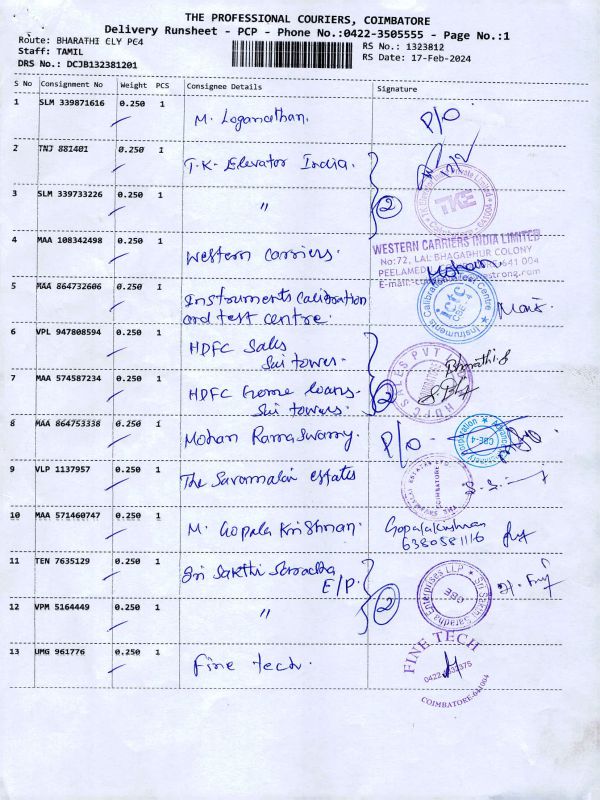 THE PROFESSIONAL COURIERS, COIMBATORE
Delivery Runsheet - PCP - Phone No.:0422-3505555 - Page No.:1
Route: BHARATHI CLY PC4
RS No.: 1323812
Staff: TAMIL
RS Date: 17-Feb-2024
DRS No.: DCJB132381201
S No Consignment No Weight PCS Consignee Details Signature
1 SLM 339871616 0.250 1 M. Loganathan. P/O
2 TNJ 881401 0.250 1 T.K- Elevator India.
TKE
3 SLM 339733226 0.250 1 " 2
4 MAA 108342498 0.250 1 Western Carriers.
WESTERN CARRIERS INDIA LIMITED
No:72, LAL BHAGADHUR COLONY
PEELAMED 641 004
Mohan
5 MAA 864732606 0.250 1 Instruments Calibration
and test centre.
Instruments Calibration & Test Centre
6 VPL 947808594 0.250 1 HDFC Sales
Sri tower.
Bharathi.S
7 MAA 574587234 0.250 1 HDFC Home loans.
Sri towers. 2
HDFC SALES PVT
8 MAA 864753338 0.250 1 Mohan Ramaswamy. P/O
CBE-4
9 VLP 1137957 0.250 1 The Savamalai estates
COIMBATORE
10 MAA 571460747 0.250 1 M. Gopala Krishnan. Gopalakrishnan
6380581116
11 TEN 7635129 0.250 1 Sri Sakthi Saradha
E/P.
Sri Sakthi Saradha Enterprises LLP
CBE
12 VPM 5164449 0.250 1 " 2
13 UMG 961776 0.250 1 Fine tech.
FINE TECH
COIMBATORE-641004